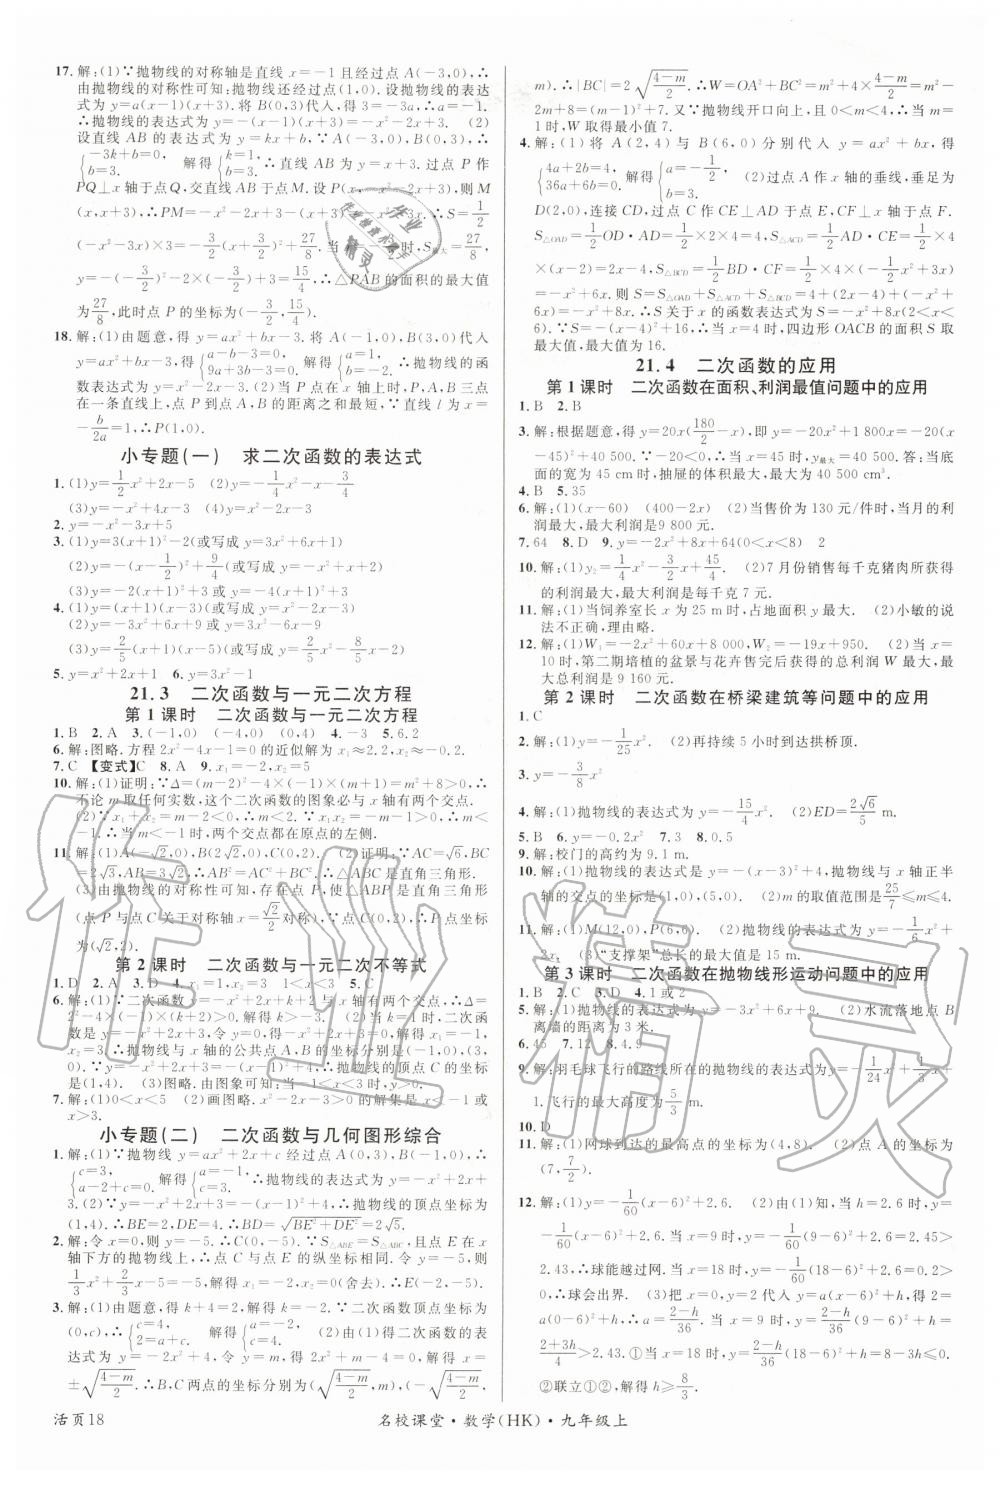 17. 解:(1)∵抛物线的对称轴是直线 x=-1 且经过点 A(-3,0),∴
由抛物线的对称性可知:抛物线还经过点(1,0). 设抛物线的表达
式为 y=a(x-1)(x+3). 将 B(0,3)代入,得 3=-3a,∴a=-1.
∴抛物线的表达式为 y=-(x-1)(x+3)=-x²-2x+3. (2)
设直线 AB 的表达式为 y=kx+b,∵A(-3,0),B(0,3),∴
{-3k+b=0, b=3. 解得{k=1, b=3. ∴直线 AB 为 y=x+3. 过点 P 作
PQ⊥x 轴于点 Q,交直线 AB 于点 M,设 P(x,-x²-2x+3),则 M
(x,x+3),∴PM=-x²-2x+3-(x+3)=-x²-3x. ∴S=1/2
(-x²-3x)×3=-3/2(x+3/2)²+27/8. 当 x=-3/2 时,S最大=27/8,
y=(-3/2)²-2×(-3/2)+3=15/4,∴△PAB 的面积的最大值
为27/8,此时点 P 的坐标为(-3/2,15/4).
18. 解:(1)由题意,得 y=ax²+bx-3. 将 A(-1,0),B(3,0)代入
y=ax²+bx-3. 得{a-b-3=0, 9a+3b-3=0. 解得{a=1, b=-2. ∴抛物线的函
数表达式为 y=x²-2x-3. (2)当点 P 在 x 轴上,P,A,B 三点
在一条直线上,点 P 到点 A、点 B 的距离之和最短,∵直线 l 为 x=
-b/2a=1,∴P(1,0).
小专题(一) 求二次函数的表达式
1. (1)y=1/2x²+2x-5 (2)y=-1/4x²-x-3/4
(3)y=-x²+4x-3 (4)y=x²-2x-3
2. y=-x²-3x+5
3. (1)y=3(x+1)²-2(或写成 y=3x²+6x+1)
(2)y=-(x-1/2)²+9/4(或写成 y=-x²+x+2)
(3)y=(x-2)²-1(或写成 y=x²-4x+3)
4. (1)y=(x+1)(x-3)(或写成 y=x²-2x-3)
(2)y=-3x²+6x+9(或写成 y=-3(x-3)(x+1))
(3)y=2/5(x+1)(x-5)(或写成 y=2/5x²-8/5x-2)
5. y=x²+2x+1 6. y=3x²-1
21.3 二次函数与一元二次方程
第 1 课时 二次函数与一元二次方程
1. B 2. A 3. (-1,0) (-4,0) (0,4) -3 4. -8 5. 6.2
6. 解:图略. 方程 2x²-4x-1=0 的近似解为 x₁≈2.2,x₂≈-0.2.
7. C 【变式】C 8. A 9. x₁=-2,x₂=5
10. 解:(1)证明:∵Δ=(m-2)²-4×(-1)×(m+1)=m²+8>0,∴
不论 m 取任何实数,这个二次函数的图象必与 x 轴有两个交点.
(2)∵x₁+x₂=m-2<0,∴m<2. ∵x₁x₂=-m-1>0,∴m<
-1. ∴当 m<-1 时,两个交点都在原点的左侧.
11. 解:(1)A(-√2,0),B(2√2,0),C(0,2). (2)证明:∵AC=√6,BC=
2√3,AB=3√2,∴AB²=AC²+BC². ∴△ABC 是直角三角形.
(3)由抛物线的对称性可知,存在点 P,使△PAB 是直角三角形
(点 P 与点 C 关于对称轴 x=√2/2对称),∵点 C(0,2),∴点 P 坐标
为(√2,2).
第 2 课时 二次函数与一元二次不等式
1. D 2. A 3. D 4. x₁=1,x₂=3 1<x<3 5. C
6. 解:(1)∵二次函数 y=-x²+2x+m 的图象与 x 轴有两个交点,∴Δ=
2²-4×(-1)m>0,解得 m>-1. (2)当 m=3 时,二次函
数是 y=-x²+2x+3,令 y=0,得-x²+2x+3=0,解得 x₁=-1,
x₂=3. ∴抛物线与 x 轴的公共点 A,B 的坐标分别为(-1,0),(3,
0). ∵y=-x²+2x+3=-(x-1)²+4,∴抛物线的顶点 C 的坐标
是(1,4). (3)图略. 由图象可知:当-1<x<3 时,y>0.
7. 解:(1)0<x<5 (2)画图略. x²-2x-3>0 的解集是 x<-1 或
x>3.
小专题(二) 二次函数与几何图形综合
1. 解:(1)∵抛物线 y=ax²+2x+c 经过点 A(0,3),B(-1,0),∴
{c=3, a-2+c=0. 解得{a=-1, c=3. ∴抛物线的表达式为 y=-x²+2x+
3. (2)∵y=-x²+2x+3=-(x-1)²+4,∴抛物线的顶点坐标为
(1,4). ∴BE=2,DE=4. ∴BD=√(BE²+DE²)=2√5.
2. 解:令 x=0,则 y=-5. ∴C(0,-5). ∵S△ABE=S△ABC,且点 E 在 x
轴下方的抛物线上,∴点 C 与点 E 的纵坐标相同. ∴令 y=-5,则
1/3x²+2/3x-5=-5,解得 x₁=-2,x₂=0(舍去). ∴E(-2,-5).
3. 解:(1)由题意,得 k+4=2,解得 k=-2. ∵二次函数顶点为
(0,c),∴{c=4, 2=a+c. 解得{a=-2, c=4. (2)由(1)得二次函数的表
达式为 y=-2x²+4,令 y=m,得 2x²+m-4=0,解得 x=
±√((4-m)/2). ∴B,C 两点的坐标分别为(√((4-m)/2),m),(-√((4-m)/2),
m). ∴|BC|=2√((4-m)/2). ∴W=OA²+BC²=m²+4×(4-m)/2=m²-
2m+8=(m-1)²+7. 又∵抛物线开口向上,且 0<m<4,∴当 m=
1时,W 取得最小值 7.
4. 解:(1)将 A(2,4)与 B(6,0)分别代入 y=ax²+bx,得
{4a+2b=4, 36a+6b=0. 解得{a=-1/2, b=3. (2)过点 A 作 x 轴的垂线,垂足为
D(2,0),连接 CD,过点 C 作 CE⊥AD 于点 E,CF⊥x 轴于点 F.
S△OAD=1/2OD·AD=1/2×2×4=4,S△ACD=1/2AD·CE=1/2×4
×(x-2)=2x-4,S△BCD=1/2BD·CF=1/2×4×(-1/2x²+3x)=
-x²+6x. 则 S=S△OAD+S△ACD+S△BCD=4+(2x-4)+(-x²+
6x)=-x²+8x. ∴S 关于 x 的函数表达式为 S=-x²+8x(2<x<
6). ∵S=-(x-4)²+16,∴当 x=4 时,四边形 OACB 的面积 S 有
最大值,最大值为 16.
21.4 二次函数的应用
第 1 课时 二次函数在面积、利润最值问题中的应用
1. B 2. B
3. 解:根据题意,得 y=20x(180/2-x),即 y=-20x²+1 800x=-20(x-
45)²+40 500. ∵-20<0,∴当 x=45 时,y最大=40 500. 答:当
底面的宽为 45 cm 时,抽屉的体积最大,最大为 40 500 cm³.
4. B 5. 35
6. 解:(1)(x-60) (400-2x) (2)当售价为 130 元/件时,当月的利
润最大,最大利润是 9 800 元.
7. 64 8. D 9. y=-2x²+8x+64(0<x<8) 2
10. 解:(1)y₂=1/4x²-3/2x+45/4. (2)7 月份销售每千克猪肉所获得
的利润最大,最大利润是每千克 7 元.
11. 解:(1)当饲养室长 x 为 25 m 时,占地面积 y 最大. (2)小敏的说
法不正确,理由略.
12. 解:(1)W₁=-2x²+60x+8 000,W₂=-19x+950. (2)当 x=
10 时,第二期培植的盆景与花卉售完后获得的总利润 W 最大,
最大总利润是 9 160 元.
第 2 课时 二次函数在桥梁建筑等问题中的应用
1. C
2. 解:(1)y=-1/25x². (2)再持续 5 小时到达拱桥顶.
3. y=-3/8x²
4. 解:(1)抛物线的表达式为 y=-15/4x². (2)ED=2√6/5 m.
5. B 6. y=-0.2x² 7. 3 8. 0.5
9. 解:校门的高约为 9.1 m.
10. 解:(1)抛物线的表达式是 y=-x²+3x+4,抛物线与 x 轴正半
轴的交点坐标为(4,0). (2)木板的取值范围是25/7≤x≤4.
11. 解:(1)M(12,0),P(6,6). (2)抛物线的表达式为 y=-1/6x²+
2x. (3)“支撑架”总长的最大值是 15 m.
第 3 课时 二次函数在抛物线形运动问题中的应用
1. B 2. C 3. D 4. 1 或 2
5. 解:(1)抛物线的表达式为 y=-3x²+6x+. (2)水流落地点 B
离墙的距离为 3 米.
6. 45 7. 12 8. 4.9
9. 解:羽毛球飞行的路线所在的抛物线的表达式为 y=-1/24x²+1/3x
+1. 飞行的最大高度为5/3 m.
10. D
11. 解:(1)网球到达的最高点的坐标为 (2)点 C 坐标为
(7,7/2).
12. 解:(1)y=-1/60(x-6)²+2.6. (2)由(1)知,当 h=2.6 时,y=
-1/60(x-6)²+2.6. 当 x=9 时,y=-1/60(9-6)²+2.6=2.45>
2.43,∴球能越过网. ∵当 x=18 时,y=-1/60(18-6)²+2.6=0.2
>0,∴球会出界. (3)把 x=0,y=2 代入 y=a(x-6)²+h,得 2=
a(0-6)²+h,∴a=(2-h)/36. 当 x=9 时,y=(2-h)/36(9-6)²+h=
(2+3h)/4>2.43. ①当 x=18 时,y=(2-h)/36(18-6)²+h=8-3h≤0.
②联立①②,解得 h≥8/3.
活页 18
名校课堂·数学(HK)·九年级上
作业精灵